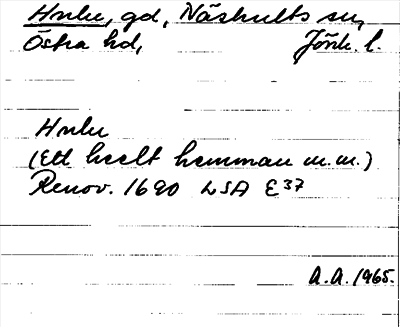 Hule, gd, Näshults sn,
Östra hd, Jönk. l.
Hule
(Ett heelt hemman m.m.)
Renov. 1690 LSA E37
A.A. 1965.